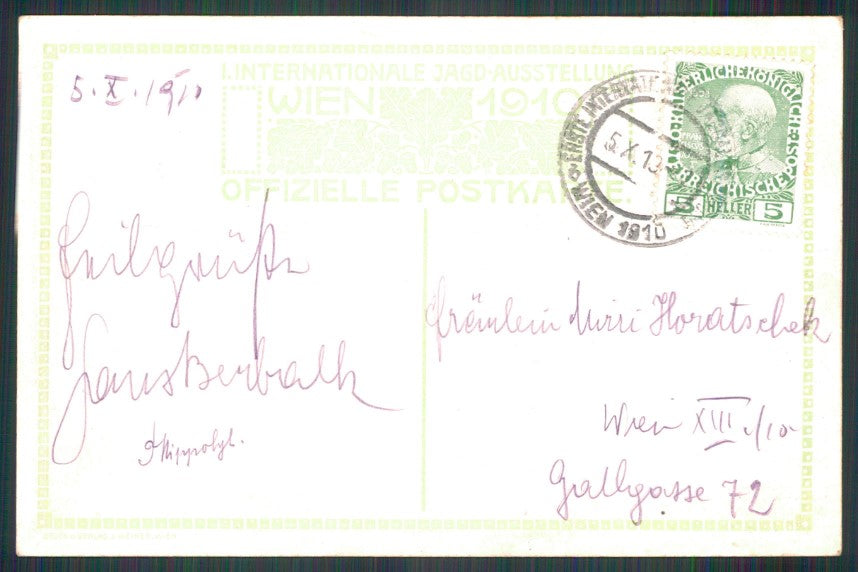 5.X.1910
I. INTERNATIONALE JAGD-AUSSTELLUNG
WIEN 1910
OFFIZIELLE POSTKARTE
KAISERLICHE KÖNIGLICHE ÖSTERREICHISCHE POST
5 HELLER 5
ERSTE INTERNAT
5.X.10
WIEN 1910
Heilgrüße
Hans
Fräulein Mizi Horatschek
Wien XIII/10
Gallgasse 72